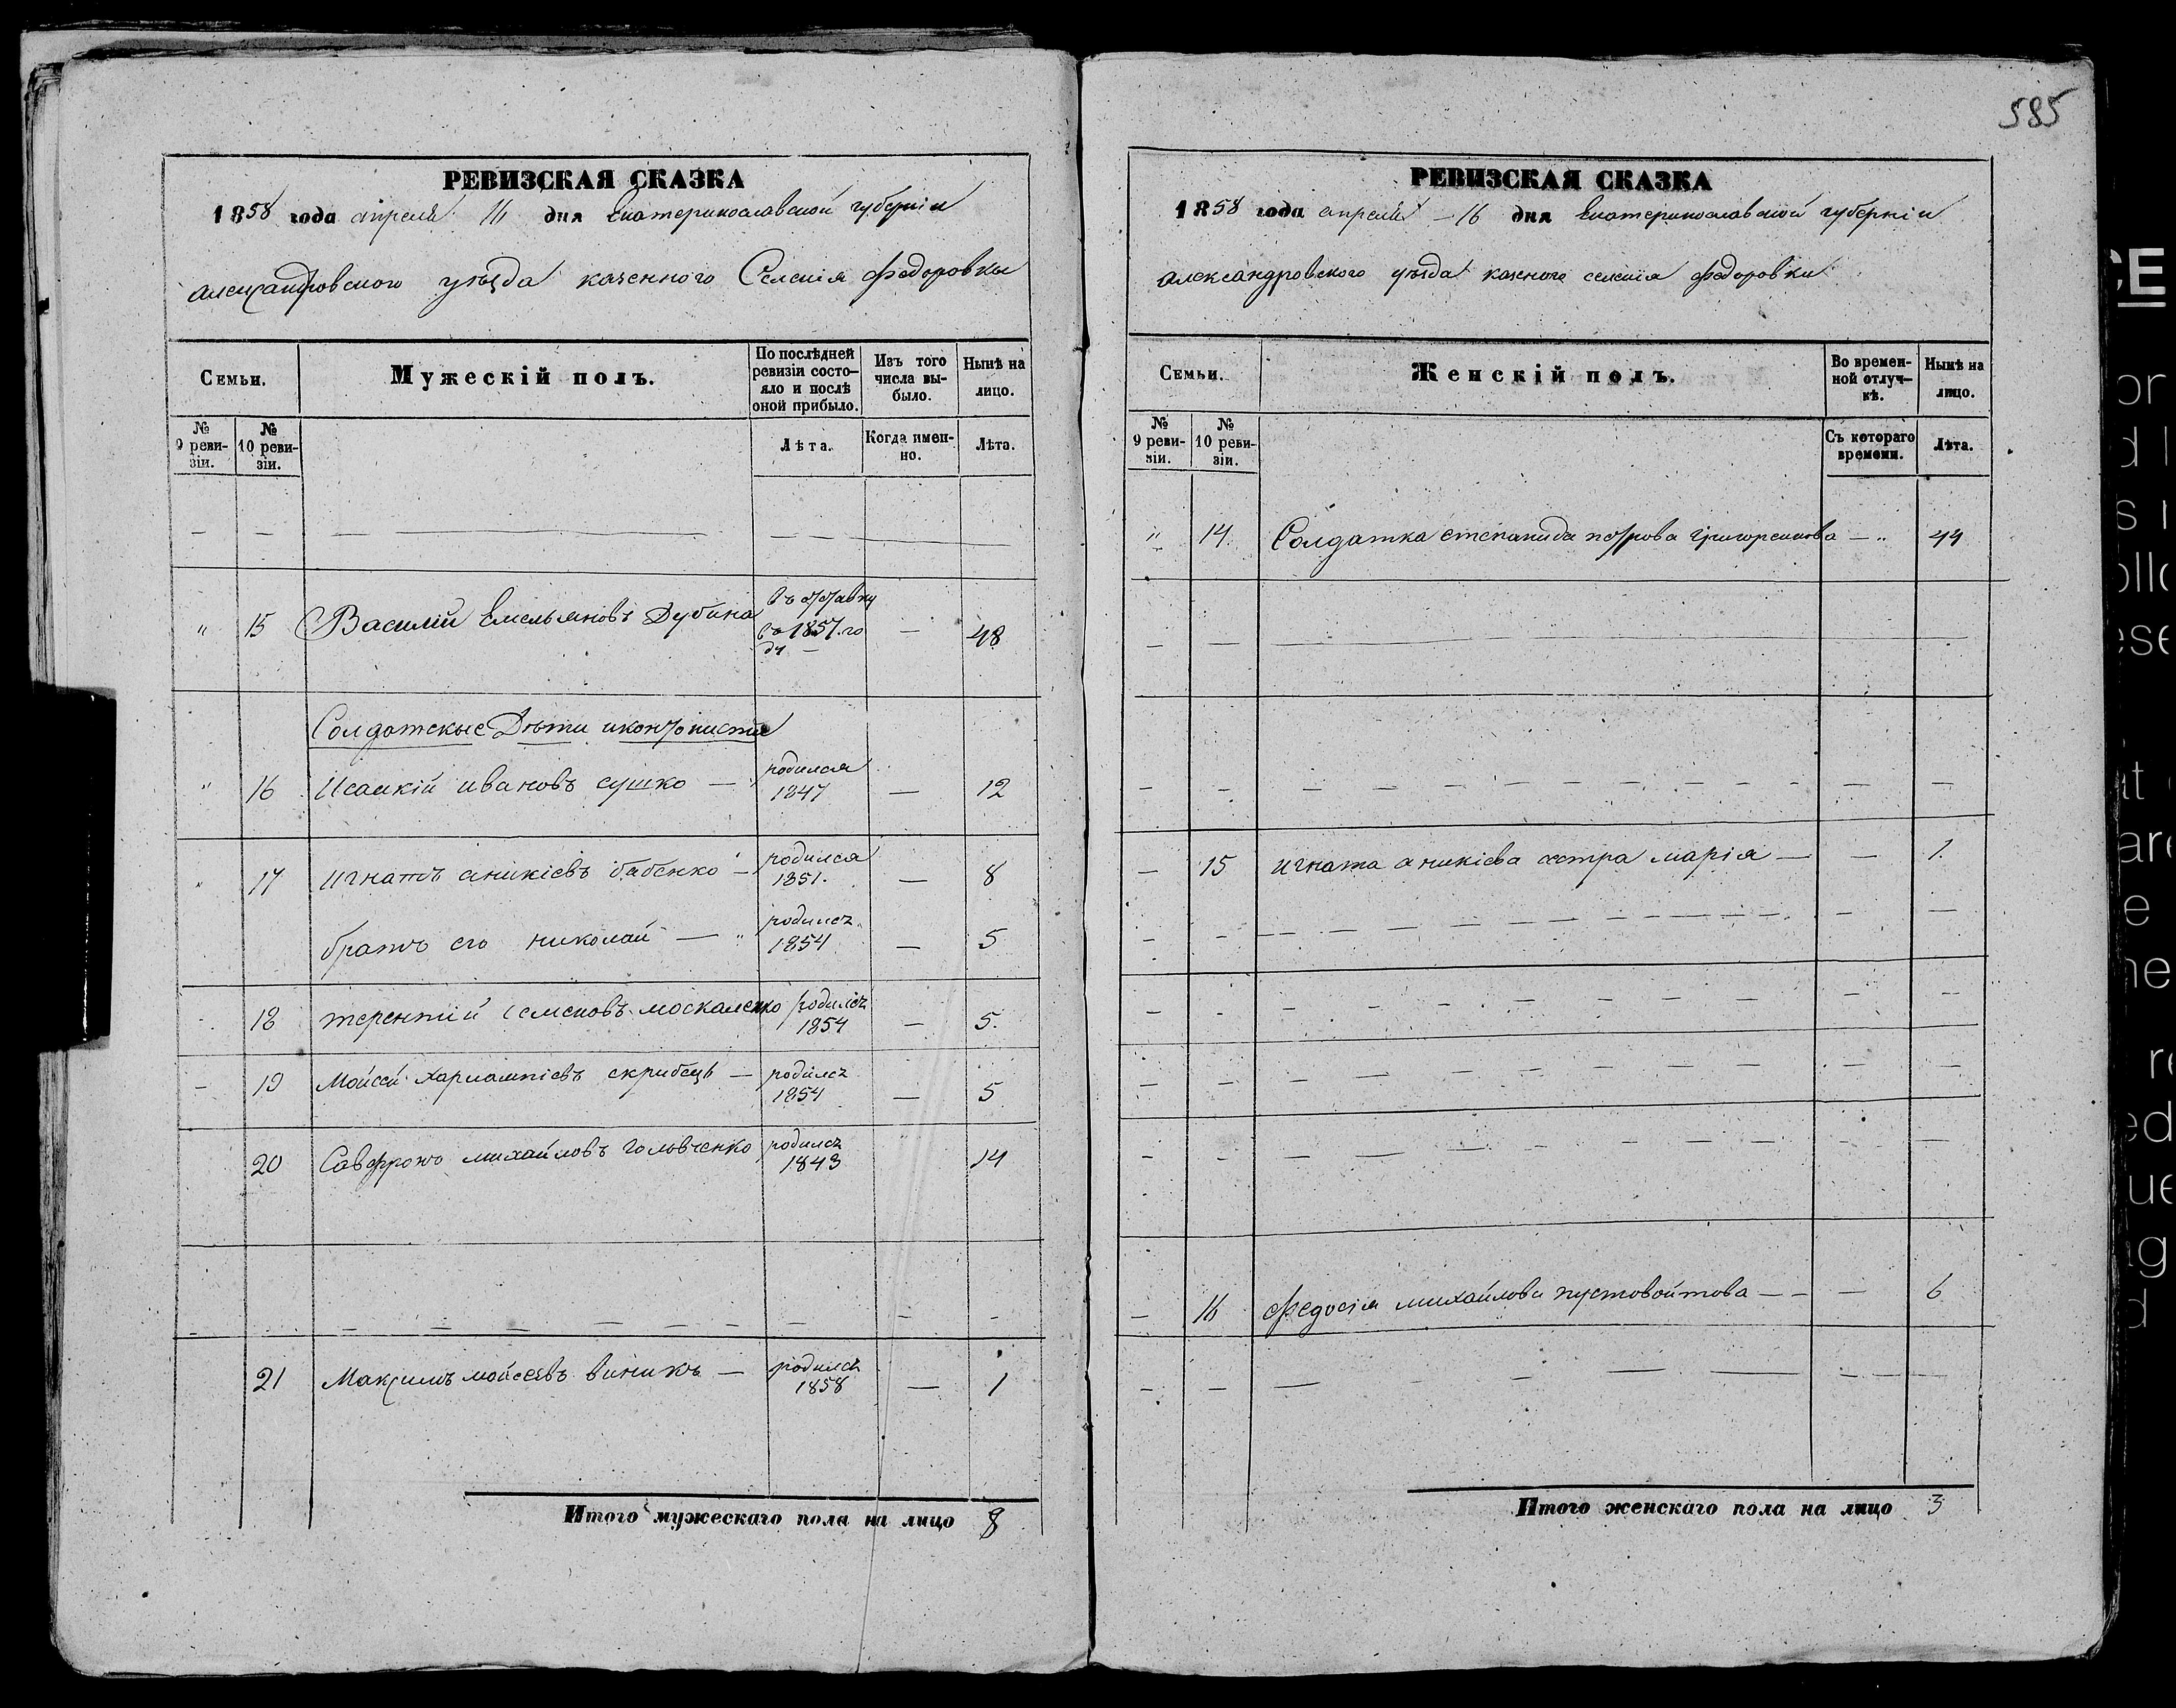 585
РЕВИЗСКАЯ СКАЗКА
1858 года апреля 16 дня Екатеринославской губернiи
Александровского уѣзда казенного Селенiя Федоровки
Семьи.
Мужескiй полъ.
По послѣдней ревизiи состо-
яло и послѣ оной прибыло.
Изъ того числа вы-
было.
Нынѣ на лицо.
№ 9 реви-
зiи.
№ 10 реви-
зiи.
Лѣта.
Когда имен-
но.
Лѣта.
— — — — — —
" 15 Василiй Емельяновъ Дубина въ отставку въ 1857 го
ду — — 48
Солдатскые Дѣти икантонисты
" 16 Исакiй ивановъ сушко — родился 1847 — 12
" 17 игнатъ аникiевъ бабенко — родился 1851. — 8
братъ его николай — " родилса 1854 — 5
18 терентiй семеновъ москаленко родилса 1854 — 5.
— 19 Мойсей харлампiевъ скрибецъ — родилса 1854 — 5
20 Савфронъ михайловъ головченко родилса 1843 14
— — — — — — —
21 Максимъ мойсеевъ виникъ — родилса 1858 — 1
Итого мужескаго пола на лицо 8
РЕВИЗСКАЯ СКАЗКА
1858 года апреля — 16 дня Екатеринославской губернiи
Александровского уѣзда казеного селенiя федоровки
Семьи.
Женскiй полъ.
Во времен-
ной отлуч-
кѣ.
Нынѣ на лицо.
№ 9 реви-
зiи.
№ 10 реви-
зiи.
Съ котораго времени.
Лѣта.
" 14 Солдатка степанида петрова григоренкова — " 44
— — — — —
— — — — — —
— 15 игната аникiева сестра марiя — — 1.
— — — — — —
— — — — — —
— — — — — —
— — — — — —
— 16 федосiя михайлова пустовойтова — — — 6
— — — — — —
Итого женскаго пола на лицо 3